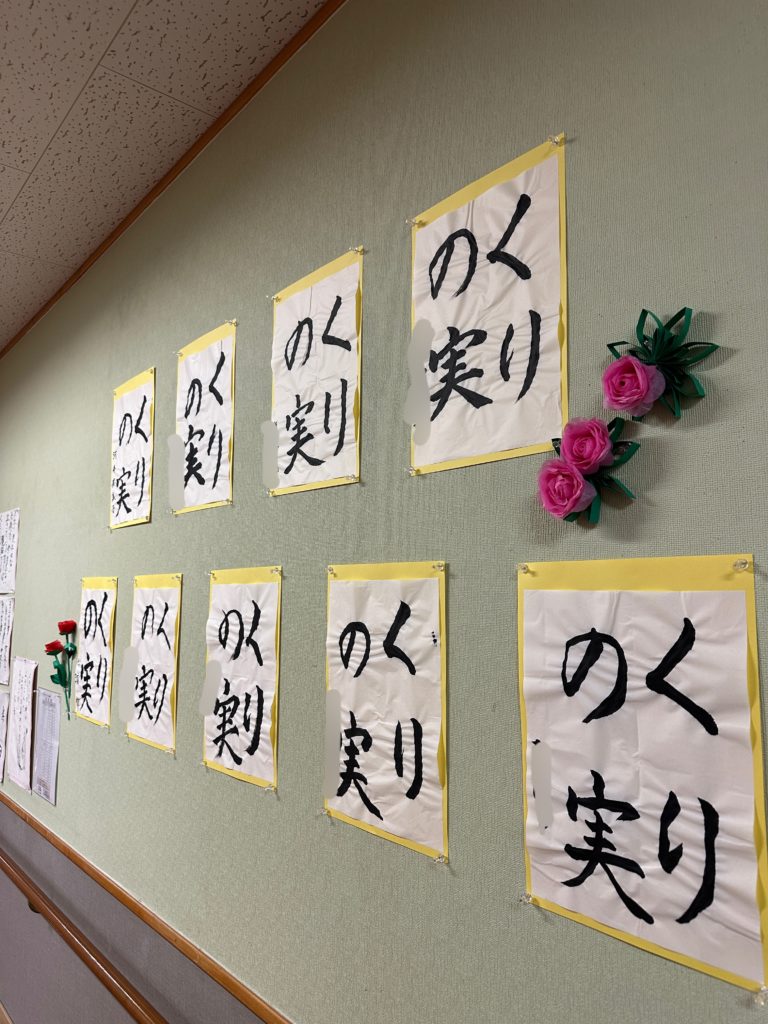 くり
の実
くり
の実
くり
の実
くり
の実
くり
の実
くり
の実
くり
の実
くり
の実
くり
の実